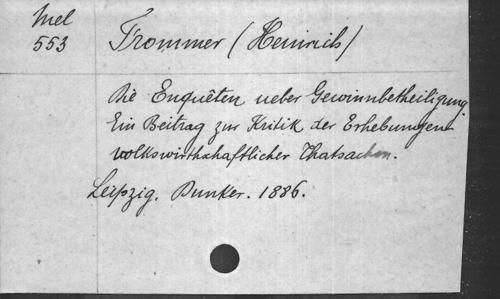 Mel
553
Frommer (Heinrich)
Die Enquêten ueber Gewinnbetheiligung.
Ein Beitrag zur Kritik der Erhebungen
volkswirthschaftlicher Thatsachen.
Leipzig. Dunker. 1886.